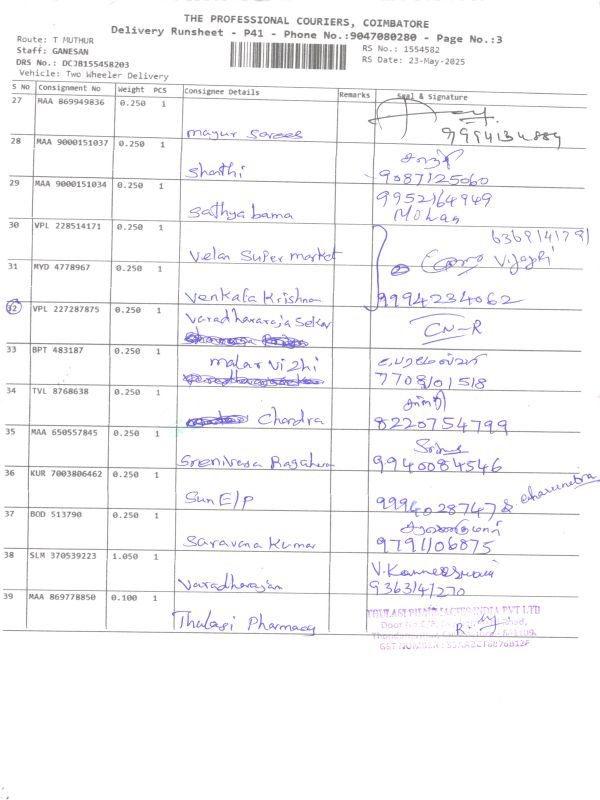 THE PROFESSIONAL COURIERS, COIMBATORE
Delivery Runsheet - P41 - Phone No.:9047080280 - Page No.:3
Route: T MUTHUR
Staff: GANESAN
DRS No.: DCJB155458203
Vehicle: Two Wheeler Delivery
RS No.: 1554582
RS Date: 23-May-2025
S No Consignment No Weight PCS Consignee Details Remarks Seal & Signature
27 MAA 869949836 0.250 1
mayur sarees
28 MAA 9000151037 0.250 1
Shathi 9087125060
29 MAA 9000151034 0.250 1 9952164949
Sathya bama Mohan
30 VPL 228514171 0.250 1 6369141791
Velan Super market
31 MYD 4778967 0.250 1
Venkata Krishnan 9994234062
32 VPL 227287875 0.250 1
Varadhararaja Sekar CN-R
33 BPT 483187 0.250 1
malar vizhi 7708101518
34 TVL 8768638 0.250 1
Chandra 8220754799
35 MAA 650557845 0.250 1
Srenivasa Ragahavan 9940084546
36 KUR 7003806462 0.250 1
Sun E/P 9994028747
37 BOD 513790 0.250 1
Saravana Kumar 9791106875
38 SLM 370539223 1.050 1 V.Kanneeswari
Varadharajan 9363141270
39 MAA 869778850 0.100 1
Thulasi Pharmacy
THULASI PHARMACIES INDIA PVT LTD